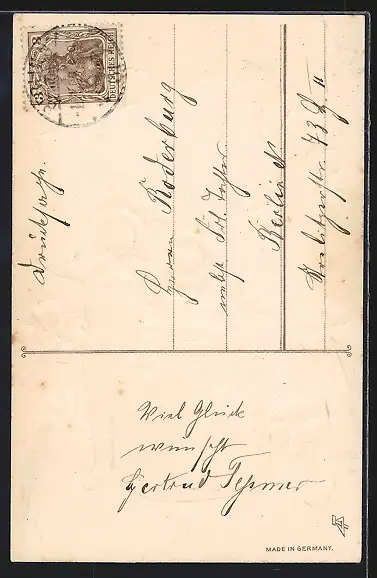 DEUTSCHES REICH
Drucksache.
Herrn Roderburg
nebst Frl. Tochter
Berlin
73
II
Viel Glück
wünscht
Gertrud
MADE IN GERMANY.